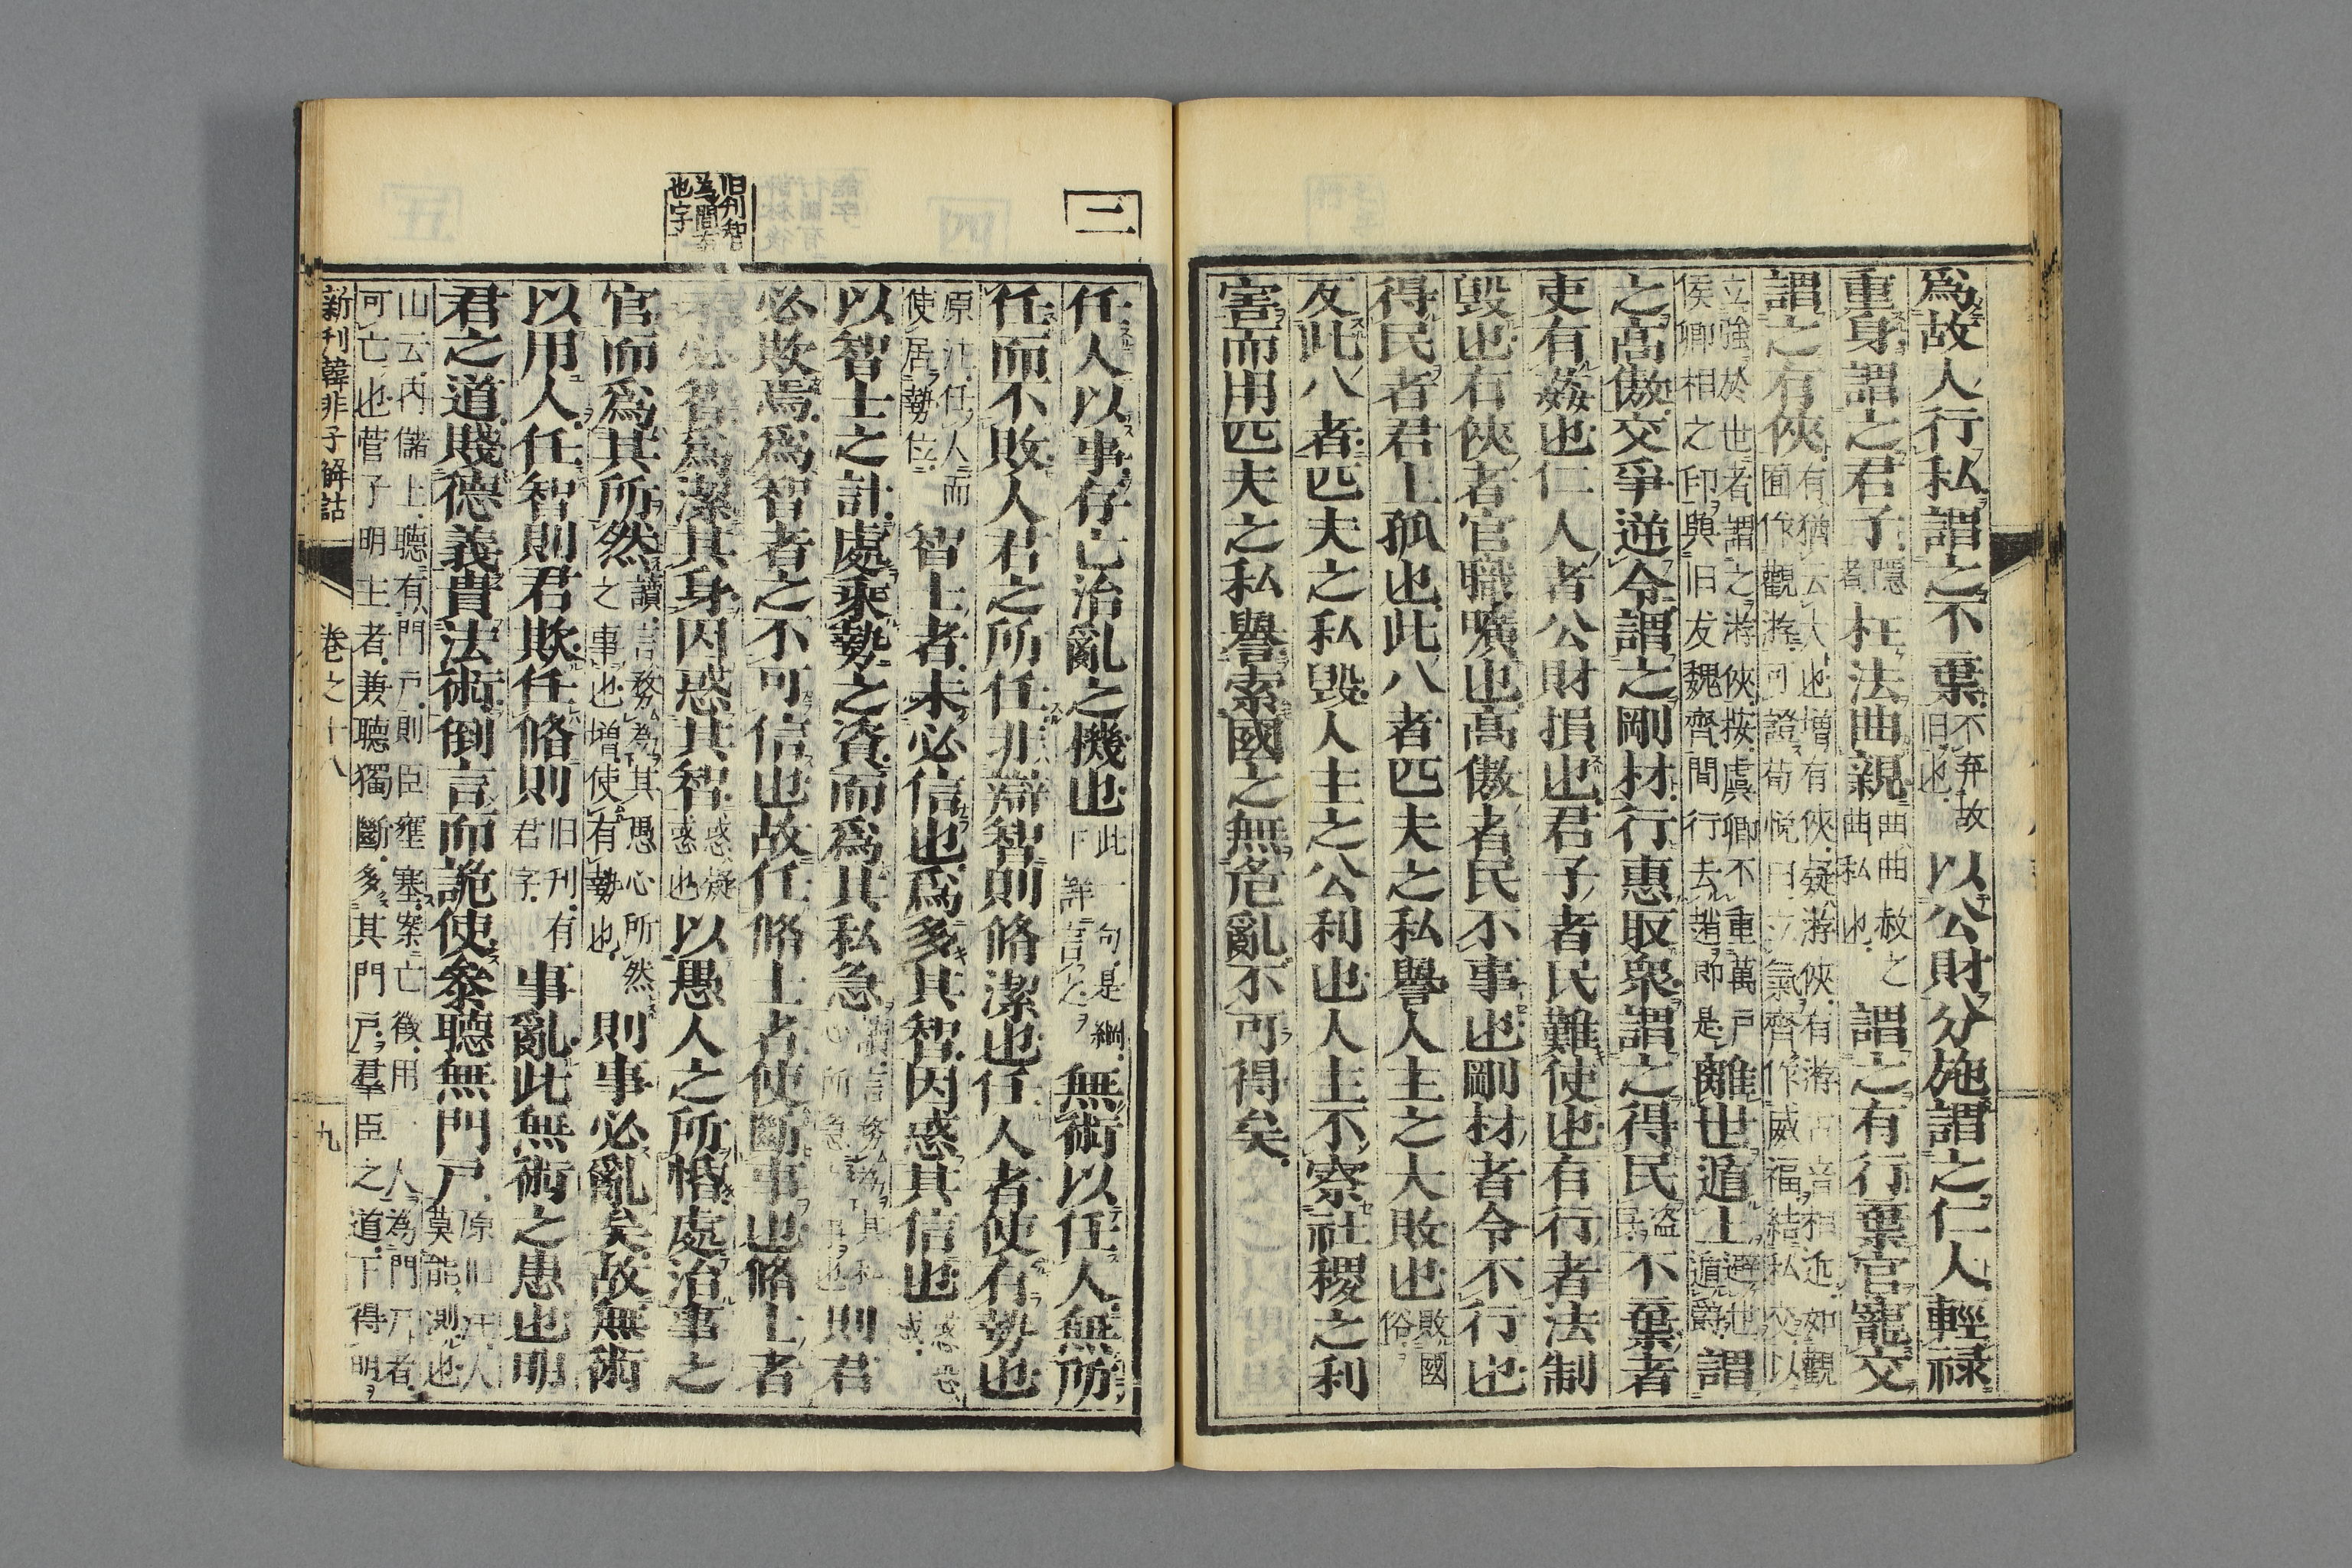 爲故人行私謂之不棄不弃故旧也以公財分施謂之仁人輕祿
重身謂之君子隱者枉法曲親曲曲赦之曲私也謂之有行棄官寵交
謂之有俠有猶云大也增有俠疑游俠有游古音相近如觀囿作觀游可證荀悅曰立氣齊作威福結私交以
立強於也者謂之游俠按虞卿不重萬戸侯卿相之印與旧友魏齊間行去趙即是離世遁上避世遁爵謂
之高傲交爭逆令謂之剛材行惠取衆謂之得民盗民不棄者
吏有姦也仁人者公財損也君子者民難使也有行者法制
毀也有俠者官職曠也高傲者民不事也剛材者令不行也
得民者君上孤也此八者匹夫之私譽人主之大敗也敗國俗
反此八者匹夫之私毀人主之公利也人主不察社稷之利
害而用匹夫之私譽索國之無危亂不可得矣
三
任人以事存亡治亂之機也此一句是綱下詳言之無術以任人無所
任而不敗人君之所任非辯智則脩潔也任人者使有勢也
原注任人而使居勢位智士者未必信也爲多其智因惑其信也
以智士之計處乘勢之資而爲其私急則君
必欺焉爲智者之不可信也故任脩士者使斷事也脩士者
旧刊智爲間有也字
未必智爲潔其身因惑其智惑疑惑也以愚人之所惽處治事之
官而爲其所然讀言務為其愚心所然之事也増使有勢也則事必亂矣故無術
以用人任智則君欺任脩則旧刊有君字事亂此無術之患也明
君之道賤德義貴法術倒言而詭使參聽無門戸原旧注人莫能測也
山云内儲上聽有門戸則臣壅塞案亡徵用一人為門戸者可亡也菅子明主者兼聽獨斷多其門戸羣臣之道下得明
新刊韓非子解詁
卷之十八
九